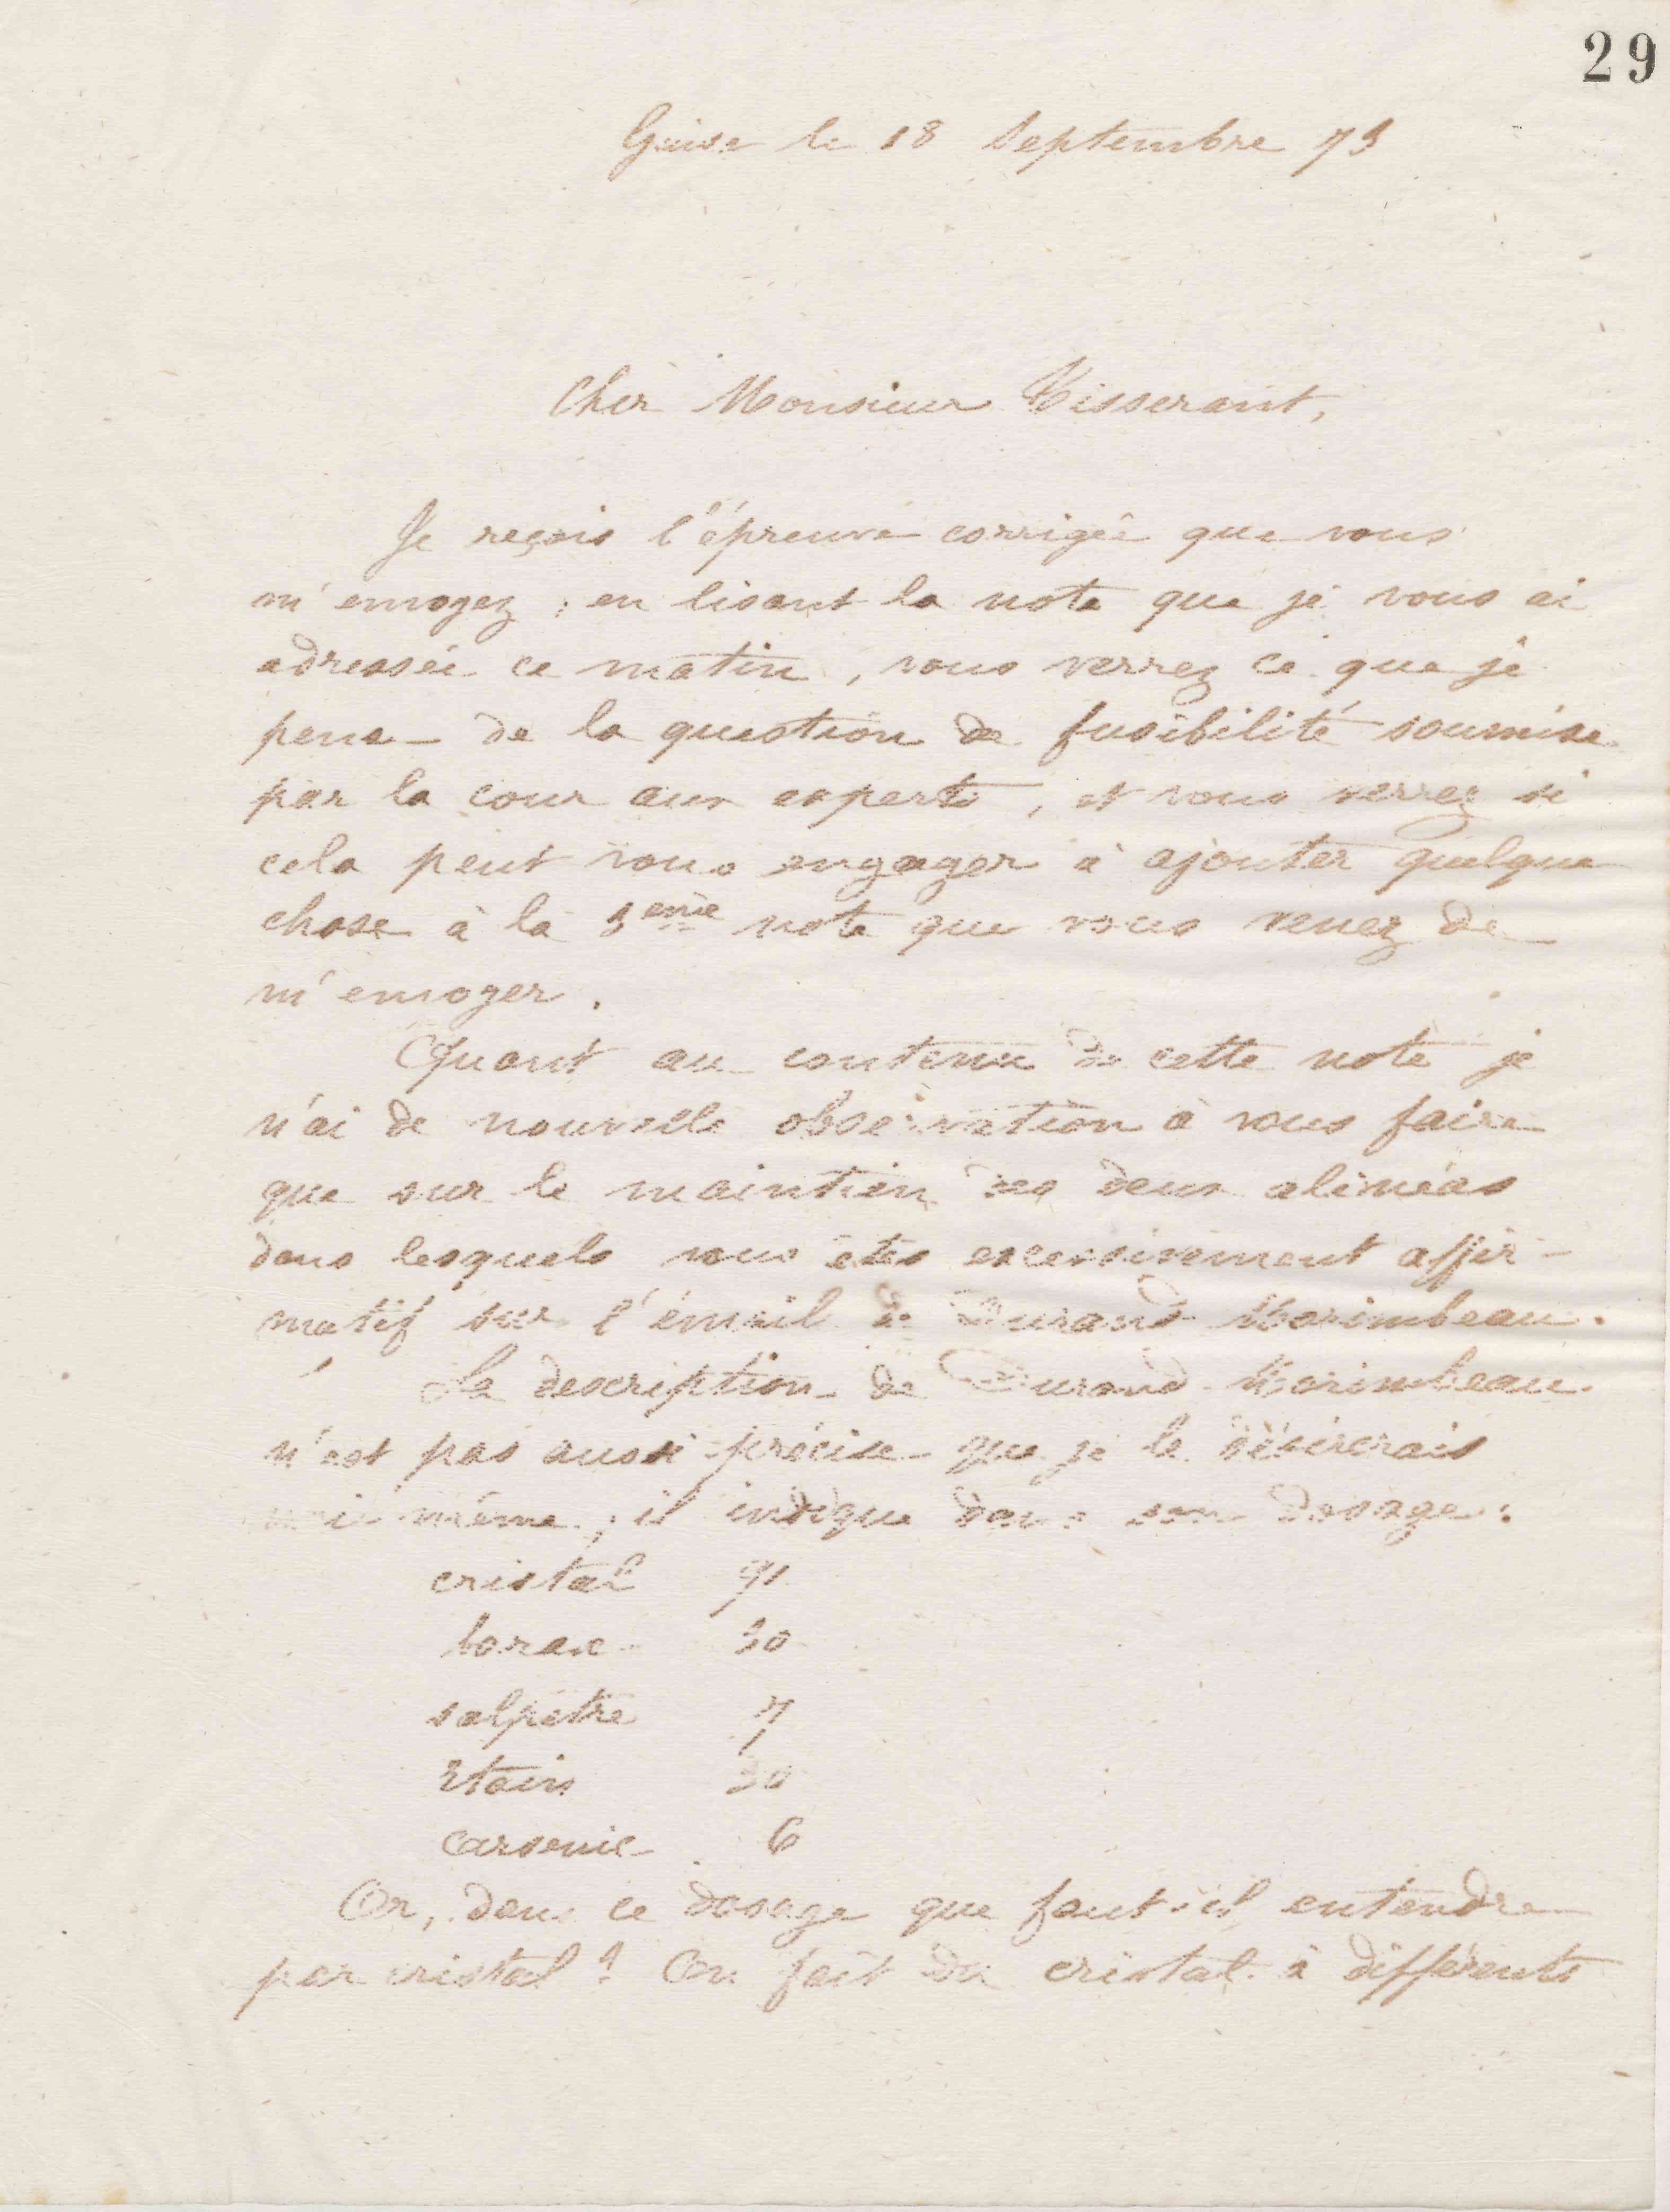 29
Guise le 18 Septembre 73
Cher Monsieur Tisserant,
Je reçois l'épreuve corrigée que vous
m'envoyez ; en lisant la note que je vous ai
adressée ce matin, vous verrez ce que je
pense de la question de fusibilité soumise
par la cour aux experts, et vous verrez si
cela peut vous engager à ajouter quelque
chose à la 3eme note que vous venez de
m'envoyer.
Quant au contenu de cette note je
n'ai de nouvelle observation à vous faire
que sur le maintien des deux alinéas
dans lesquels vous êtes excessivement affir-
matif sur l'émail de Durand Morimbeau.
La description de Durand Morimbeau
n'est pas aussi précise que je le désirerais
moi même ; il indique dans son dosage :
cristal 91
borax 30
salpêtre 7
Etain 30
arsenic 6
Or, dans ce dosage que faut-il entendre
par cristal ? On fait du cristal à différents